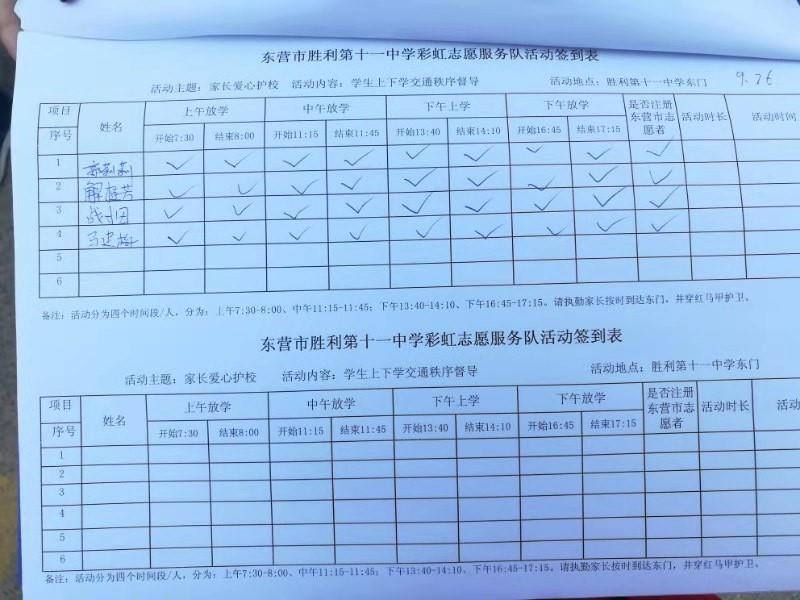 东营市胜利第十一中学彩虹志愿服务队活动签到表
活动主题：家长爱心护校 活动内容：学生上下学交通秩序督导 活动地点：胜利第十一中学东门 9.26
项目 姓名 上午放学 中午放学 下午上学 下午放学 是否注册东营市志愿者 活动时长 活动时间
序号 开始7:30 结束8:00 开始11:15 结束11:45 开始13:40 结束14:10 开始16:45 结束17:15
1 ✓ ✓ ✓ ✓ ✓ ✓ ✓ ✓ ✓
2 ✓ ✓ ✓ ✓ ✓ ✓ ✓ ✓ ✓
3 ✓ ✓ ✓ ✓ ✓ ✓ ✓ ✓ ✓
4 马建梅 ✓ ✓ ✓ ✓ ✓ ✓ ✓ ✓ ✓
5
6
备注：活动分为四个时间段/人，分为：上午7:30-8:00、中午11:15-11:45；下午13:40-14:10、下午16:45-17:15。请执勤家长按时到达东门，并穿红马甲护卫。
东营市胜利第十一中学彩虹志愿服务队活动签到表
活动主题：家长爱心护校 活动内容：学生上下学交通秩序督导 活动地点：胜利第十一中学东门
项目 姓名 上午放学 中午放学 下午上学 下午放学 是否注册东营市志愿者 活动时长 活动
序号 开始7:30 结束8:00 开始11:15 结束11:45 开始13:40 结束14:10 开始16:45 结束17:15
1
2
3
4
5
6
备注：活动分为四个时间段/人，分为：上午7:30-8:00、中午11:15-11:45；下午13:40-14:10、下午16:45-17:15。请执勤家长按时到达东门，并穿红马甲护卫。